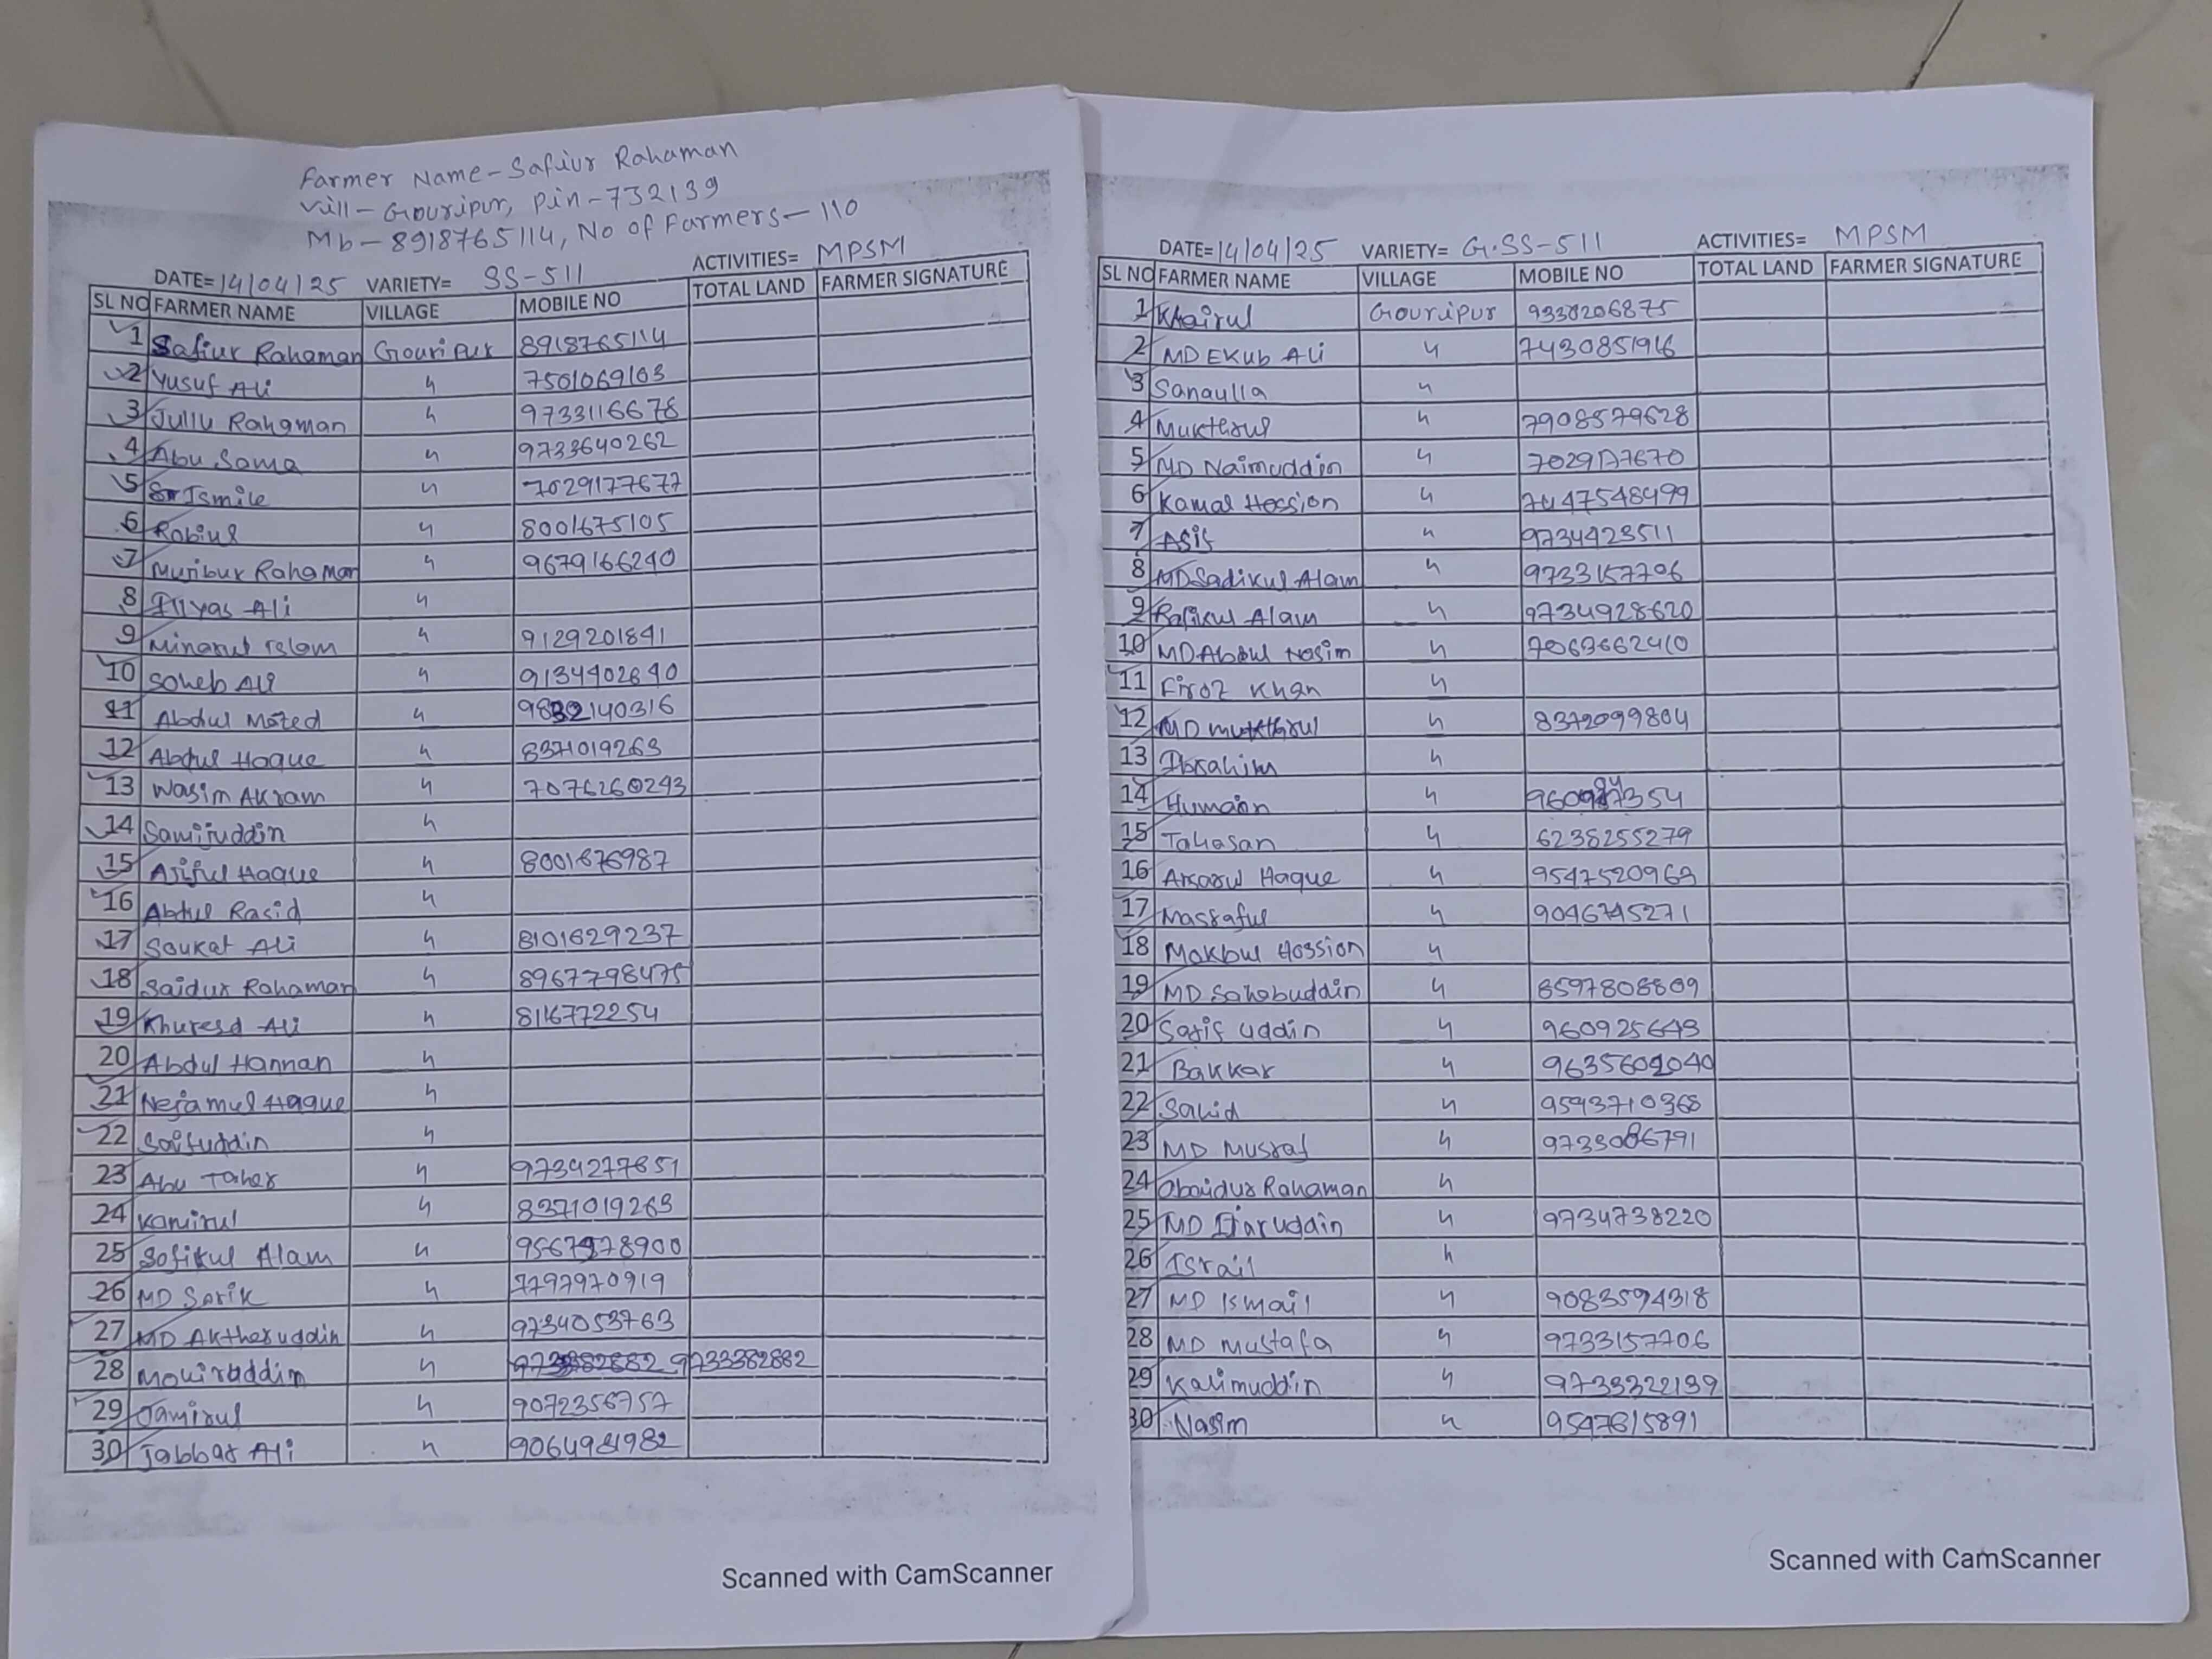 Farmer Name - Safiur Rahaman
Vill - Gouripur, Pin - 732139
Mb - 8918765114, No of Farmers - 110
DATE= 14/04/25 VARIETY= SS-511 ACTIVITIES= MPSM
SL NO FARMER NAME VILLAGE MOBILE NO TOTAL LAND FARMER SIGNATURE
1 Safiur Rahaman Gouripur 8918765114
2 Yusuf Ali " 7501069103
3 Jullu Rahaman " 9733116678
4 Abu Sama " 9733640262
5 Ismile " 7029177677
6 Robiul " 8001675105
7 Muribur Rahaman " 9679166240
8 Illyas Ali "
9 Minarul Islam " 9129201841
10 Soheb Ali " 9134402640
11 Abdul Mozed " 9832140316
12 Abdul Hoque " 8371019263
13 Wasim Akram " 7076260293
14 Samijuddin "
15 Ajijul Haque " 8001676987
16 Abdul Rasid "
17 Soukat Ali " 8101629237
18 Saidur Rahaman " 8967798475
19 Khuresd Ali " 8116772254
20 Abdul Hannan "
21 Nejamul Haque "
22 Saifuddin "
23 Abu Taher " 9734277651
24 Kamirul " 8371019263
25 Sofikul Alam " 9567978900
26 MD Sarik " 7797970919
27 MD Aktheruddin " 9734053763
28 Mouiruddin " 9733382882
29 Jamirul " 9072356757
30 Jabbar Ali " 9064981982
Scanned with CamScanner
DATE= 14/04/25 VARIETY= G.SS-511 ACTIVITIES= MPSM
SL NO FARMER NAME VILLAGE MOBILE NO TOTAL LAND FARMER SIGNATURE
1 Khairul Gouripur 9330206875
2 MD Ekub Ali " 7430851916
3 Sanaulla "
4 Mukthrul " 7908579628
5 MD Naimuddin " 7029177670
6 Kamal Hession " 7447548499
7 Asif " 9734423511
8 MD Sadikul Alam " 9733157706
9 Rafikul Alam " 9734928620
10 MD Abdul Nasim " 7063662410
11 Firoz Khan "
12 MD Mukthrul " 8372099804
13 Ibrahim "
14 Humaon "
15 Tahasan " 6238255279
16 Ansarul Haque " 9547520963
17 Massaful " 9046745271
18 Mokbul Hossion "
19 MD Sahabuddin " 8597808809
20 Satif Uddin " 960925643
21 Bakkar " 9635602040
22 Sahid " 9593710368
23 MD Musraf " 9733086791
24 Obaidur Rahaman "
25 MD Ijaruddin " 9734738220
26 Israil "
27 MD Ismail " 9083594318
28 MD Mustafa " 9733157706
29 Kalimuddin " 9733322139
30 Nasim " 9547615891
Scanned with CamScanner